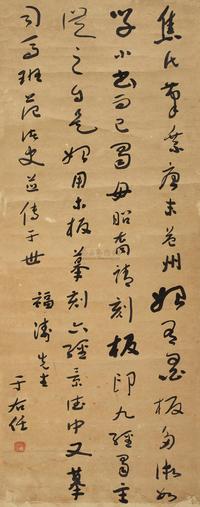 焦氏筆乘唐末益州始有墨板多術數
學小書而已蜀毋昭裔請刻板印九經蜀主
從之自是始用木板摹刻六經景德中又摹
司馬班范諸史並傳于世
福濤先生
于右任